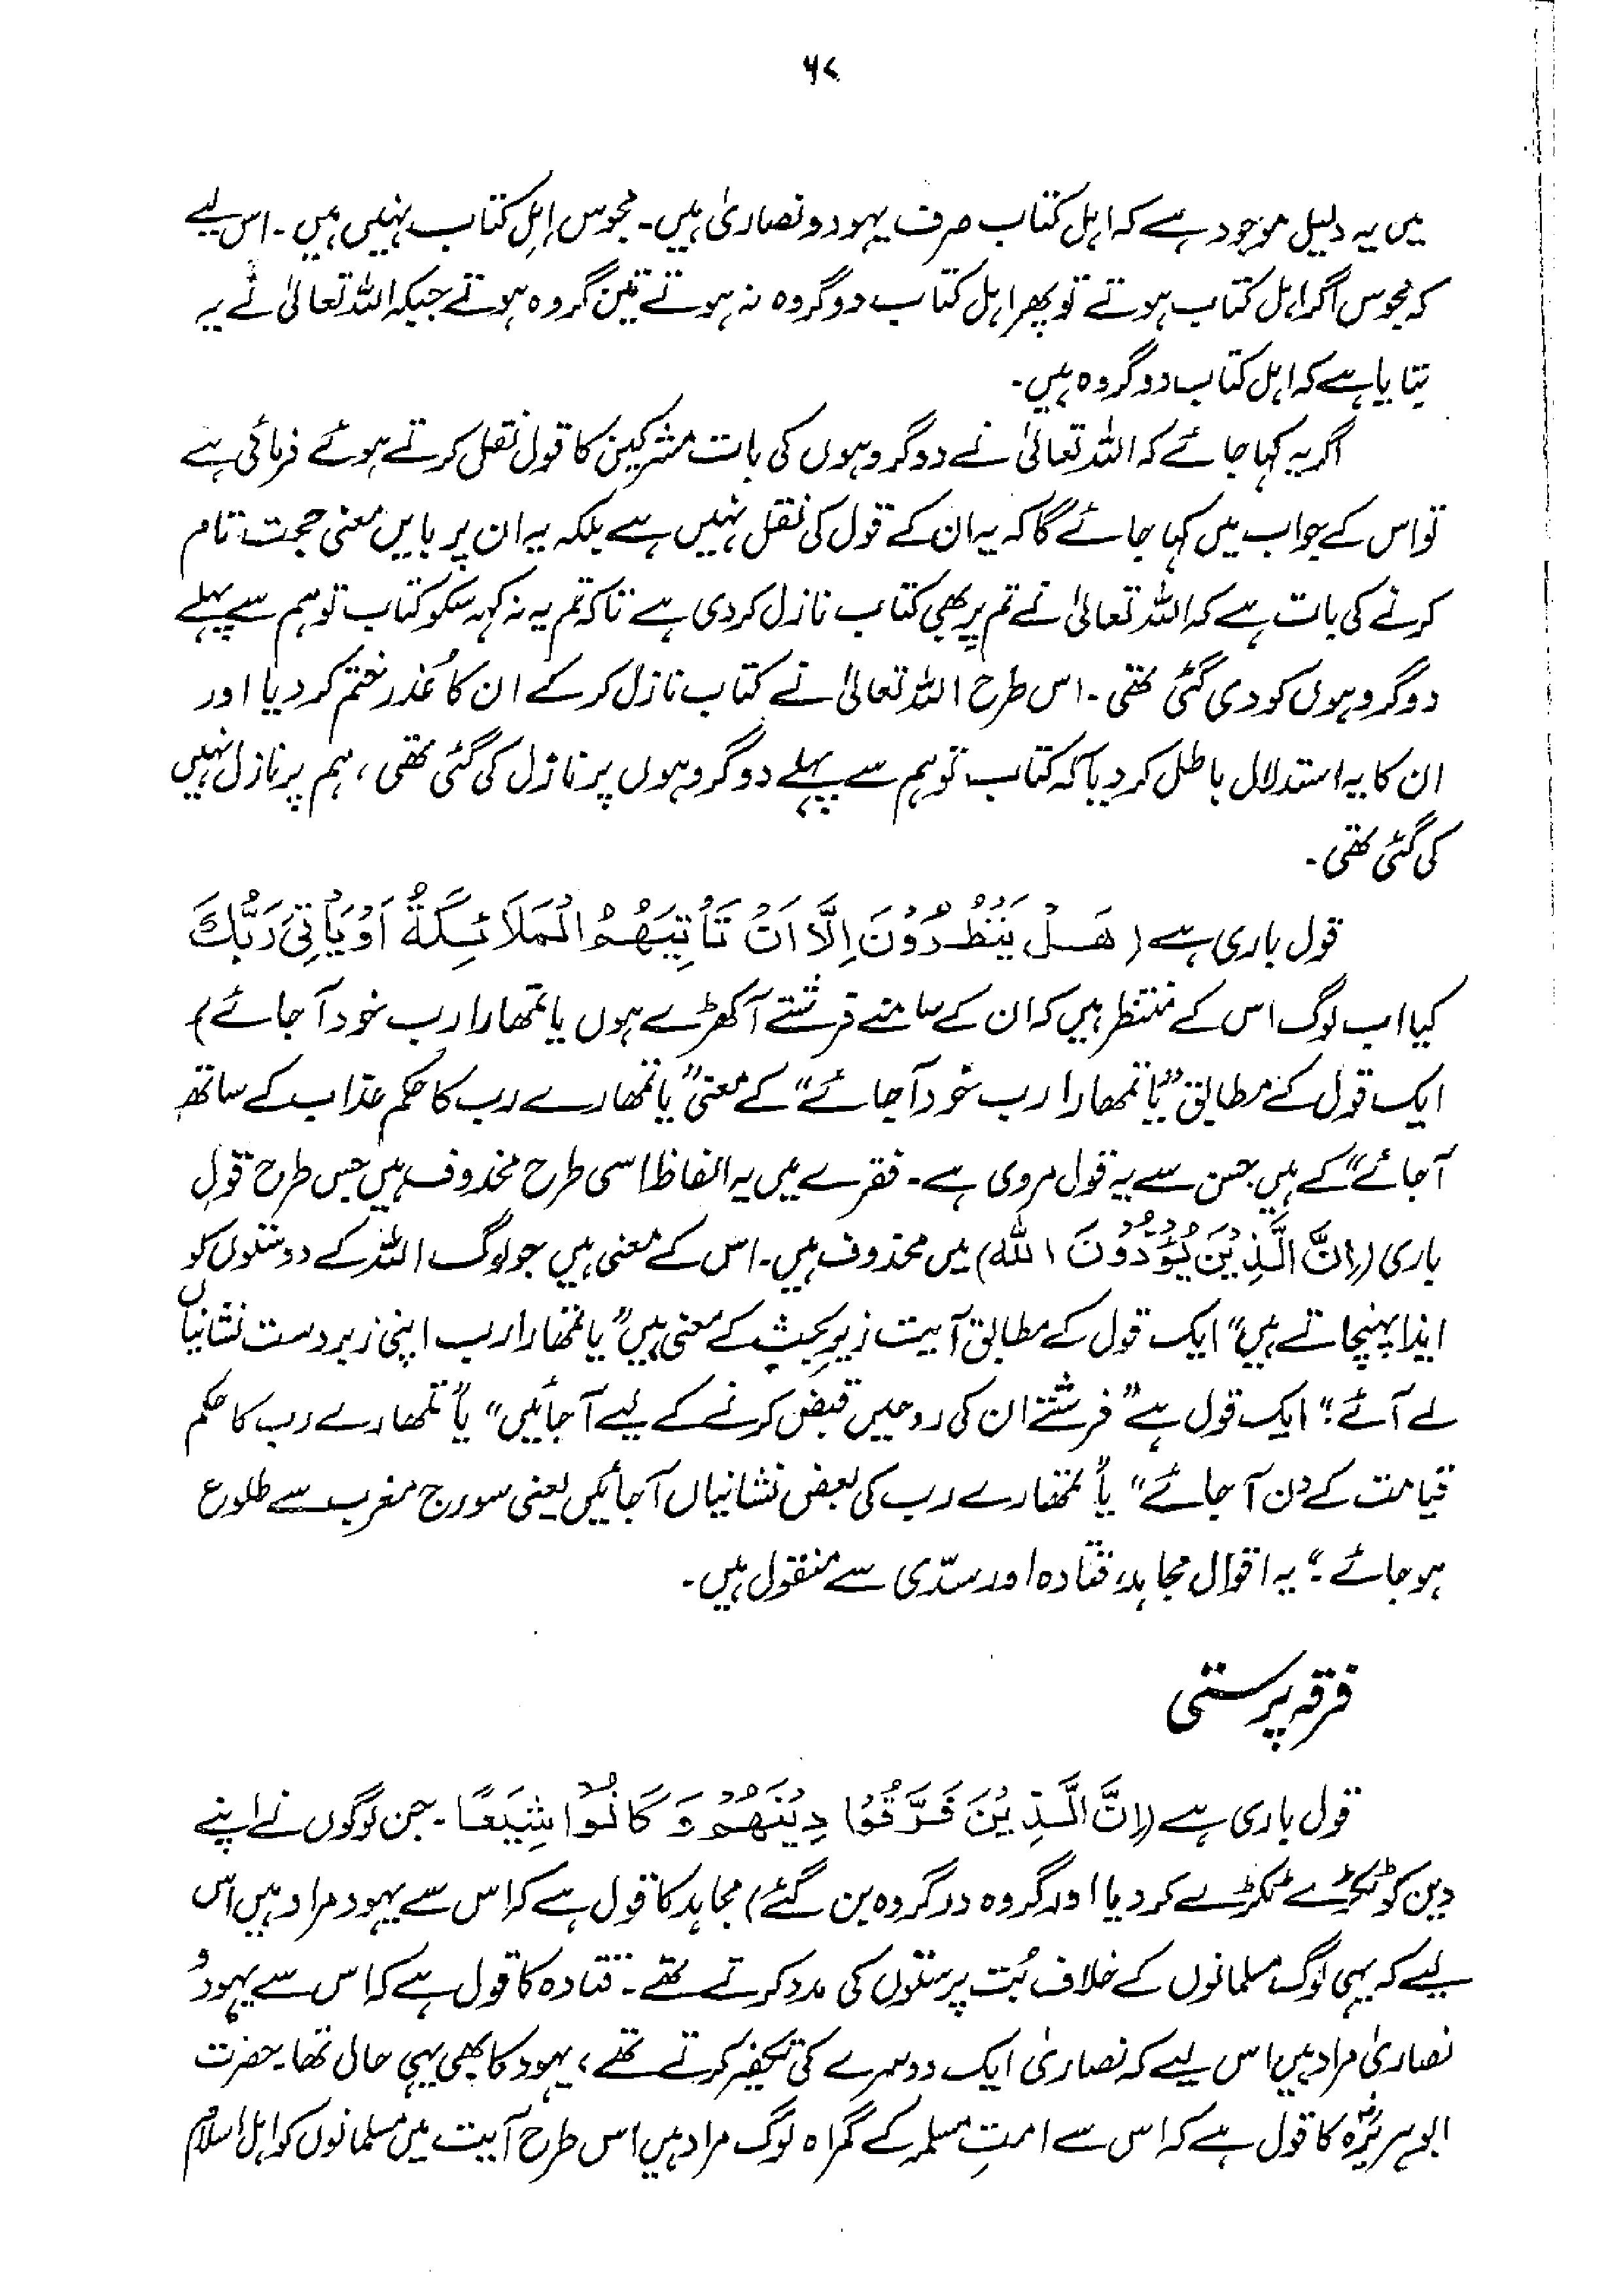 ۶۷
میں یہ دلیل موجود ہے کہ اہل کتاب صرف یہود و نصاریٰ ہیں۔ مجوس اہلِ کتاب نہیں ہیں۔ اس لیے
کہ مجوس اگر اہل کتاب ہوتے تو پھر اہل کتاب دو گروہ نہ ہوتے تین گروہ ہوتے جبکہ اللہ تعالیٰ نے یہ
بتایا ہے کہ اہل کتاب دو گروہ ہیں۔
اگر یہ کہا جائے کہ اللہ تعالیٰ نے دو گروہوں کی بات مشرکین کا قول نقل کرتے ہوئے فرمائی ہے
تو اس کے جواب میں کہا جائے گا کہ یہ ان کے قول کی نقل نہیں ہے بلکہ یہ ان پر بایں معنی حجت تام
کرنے کی بات ہے کہ اللہ تعالیٰ نے تم پر بھی کتاب نازل کر دی ہے تاکہ تم یہ نہ کہہ سکو کتاب تو ہم سے پہلے
دو گروہوں کو دی گئی تھی۔ اس طرح اللہ تعالیٰ نے کتاب نازل کر کے ان کا عُذر ختم کر دیا اور
ان کا یہ استدلال باطل کر دیا کہ کتاب تو ہم سے پہلے دو گروہوں پر نازل کی گئی تھی، ہم پر نازل نہیں
کی گئی تھی۔
قول باری ہے (هَلْ يَنْظُرُوْنَ اِلَّا اَنْ تَاْتِيَهُمُ الْمَلَائِكَةُ اَوْ يَاْتِيَ رَبُّكَ
کیا اب لوگ اس کے منتظر ہیں کہ ان کے سامنے فرشتے آ کھڑے ہوں یا تمھارا رب خود آ جائے)
ایک قول کے مطابق ”یا تمھارا رب خود آ جائے“ کے معنی ”یا تمھارے رب کا حکم عذاب کے ساتھ
آ جائے“ کے ہیں حسن سے یہ قول مروی ہے۔ فقرے میں یہ الفاظ اسی طرح محذوف ہیں جس طرح قولِ
باری (اِنَّ الَّذِيْنَ يُؤْذُوْنَ اللہ) میں محذوف ہیں۔ اس کے معنی ہیں جو لوگ اللہ کے دوستوں کو
ایذا پہنچاتے ہیں“ ایک قول کے مطابق آیت زیرِ بحث کے معنی ہیں ”یا تمھارا رب اپنی زبردست نشانیاں
لے آئے“ ایک قول ہے ”فرشتے ان کی روحیں قبض کرنے کے لیے آ جائیں“ یا ”تمھارے رب کا حکم
قیامت کے دن آ جائے“ یا ”تمھارے رب کی بعض نشانیاں آ جائیں یعنی سورج مغرب سے طلوع
ہو جائے۔“ یہ اقوال مجاہد، قتادہ اور سدّی سے منقول ہیں۔
فرقہ پرستی
قول باری ہے (اِنَّ الَّذِيْنَ فَرَّقُوْا دِيْنَهُمْ وَ كَانُوْا شِيَعًا۔ جن لوگوں نے اپنے
دین کو ٹکڑے ٹکڑے کر دیا اور گروہ در گروہ بن گئے) مجاہد کا قول ہے کہ اس سے یہود مراد ہیں اس
لیے کہ یہی لوگ مسلمانوں کے خلاف بُت پرستوں کی مدد کرتے تھے۔ قتادہ کا قول ہے کہ اس سے یہود و
نصاریٰ مراد ہیں اس لیے کہ نصاریٰ ایک دوسرے کی تکفیر کرتے تھے، یہود کا بھی یہی حال تھا۔ حضرت
ابو ہریرہؓ کا قول ہے کہ اس سے امتِ مسلمہ کے گمراہ لوگ مراد ہیں اس طرح آیت میں مسلمانوں کو اہل اسلام